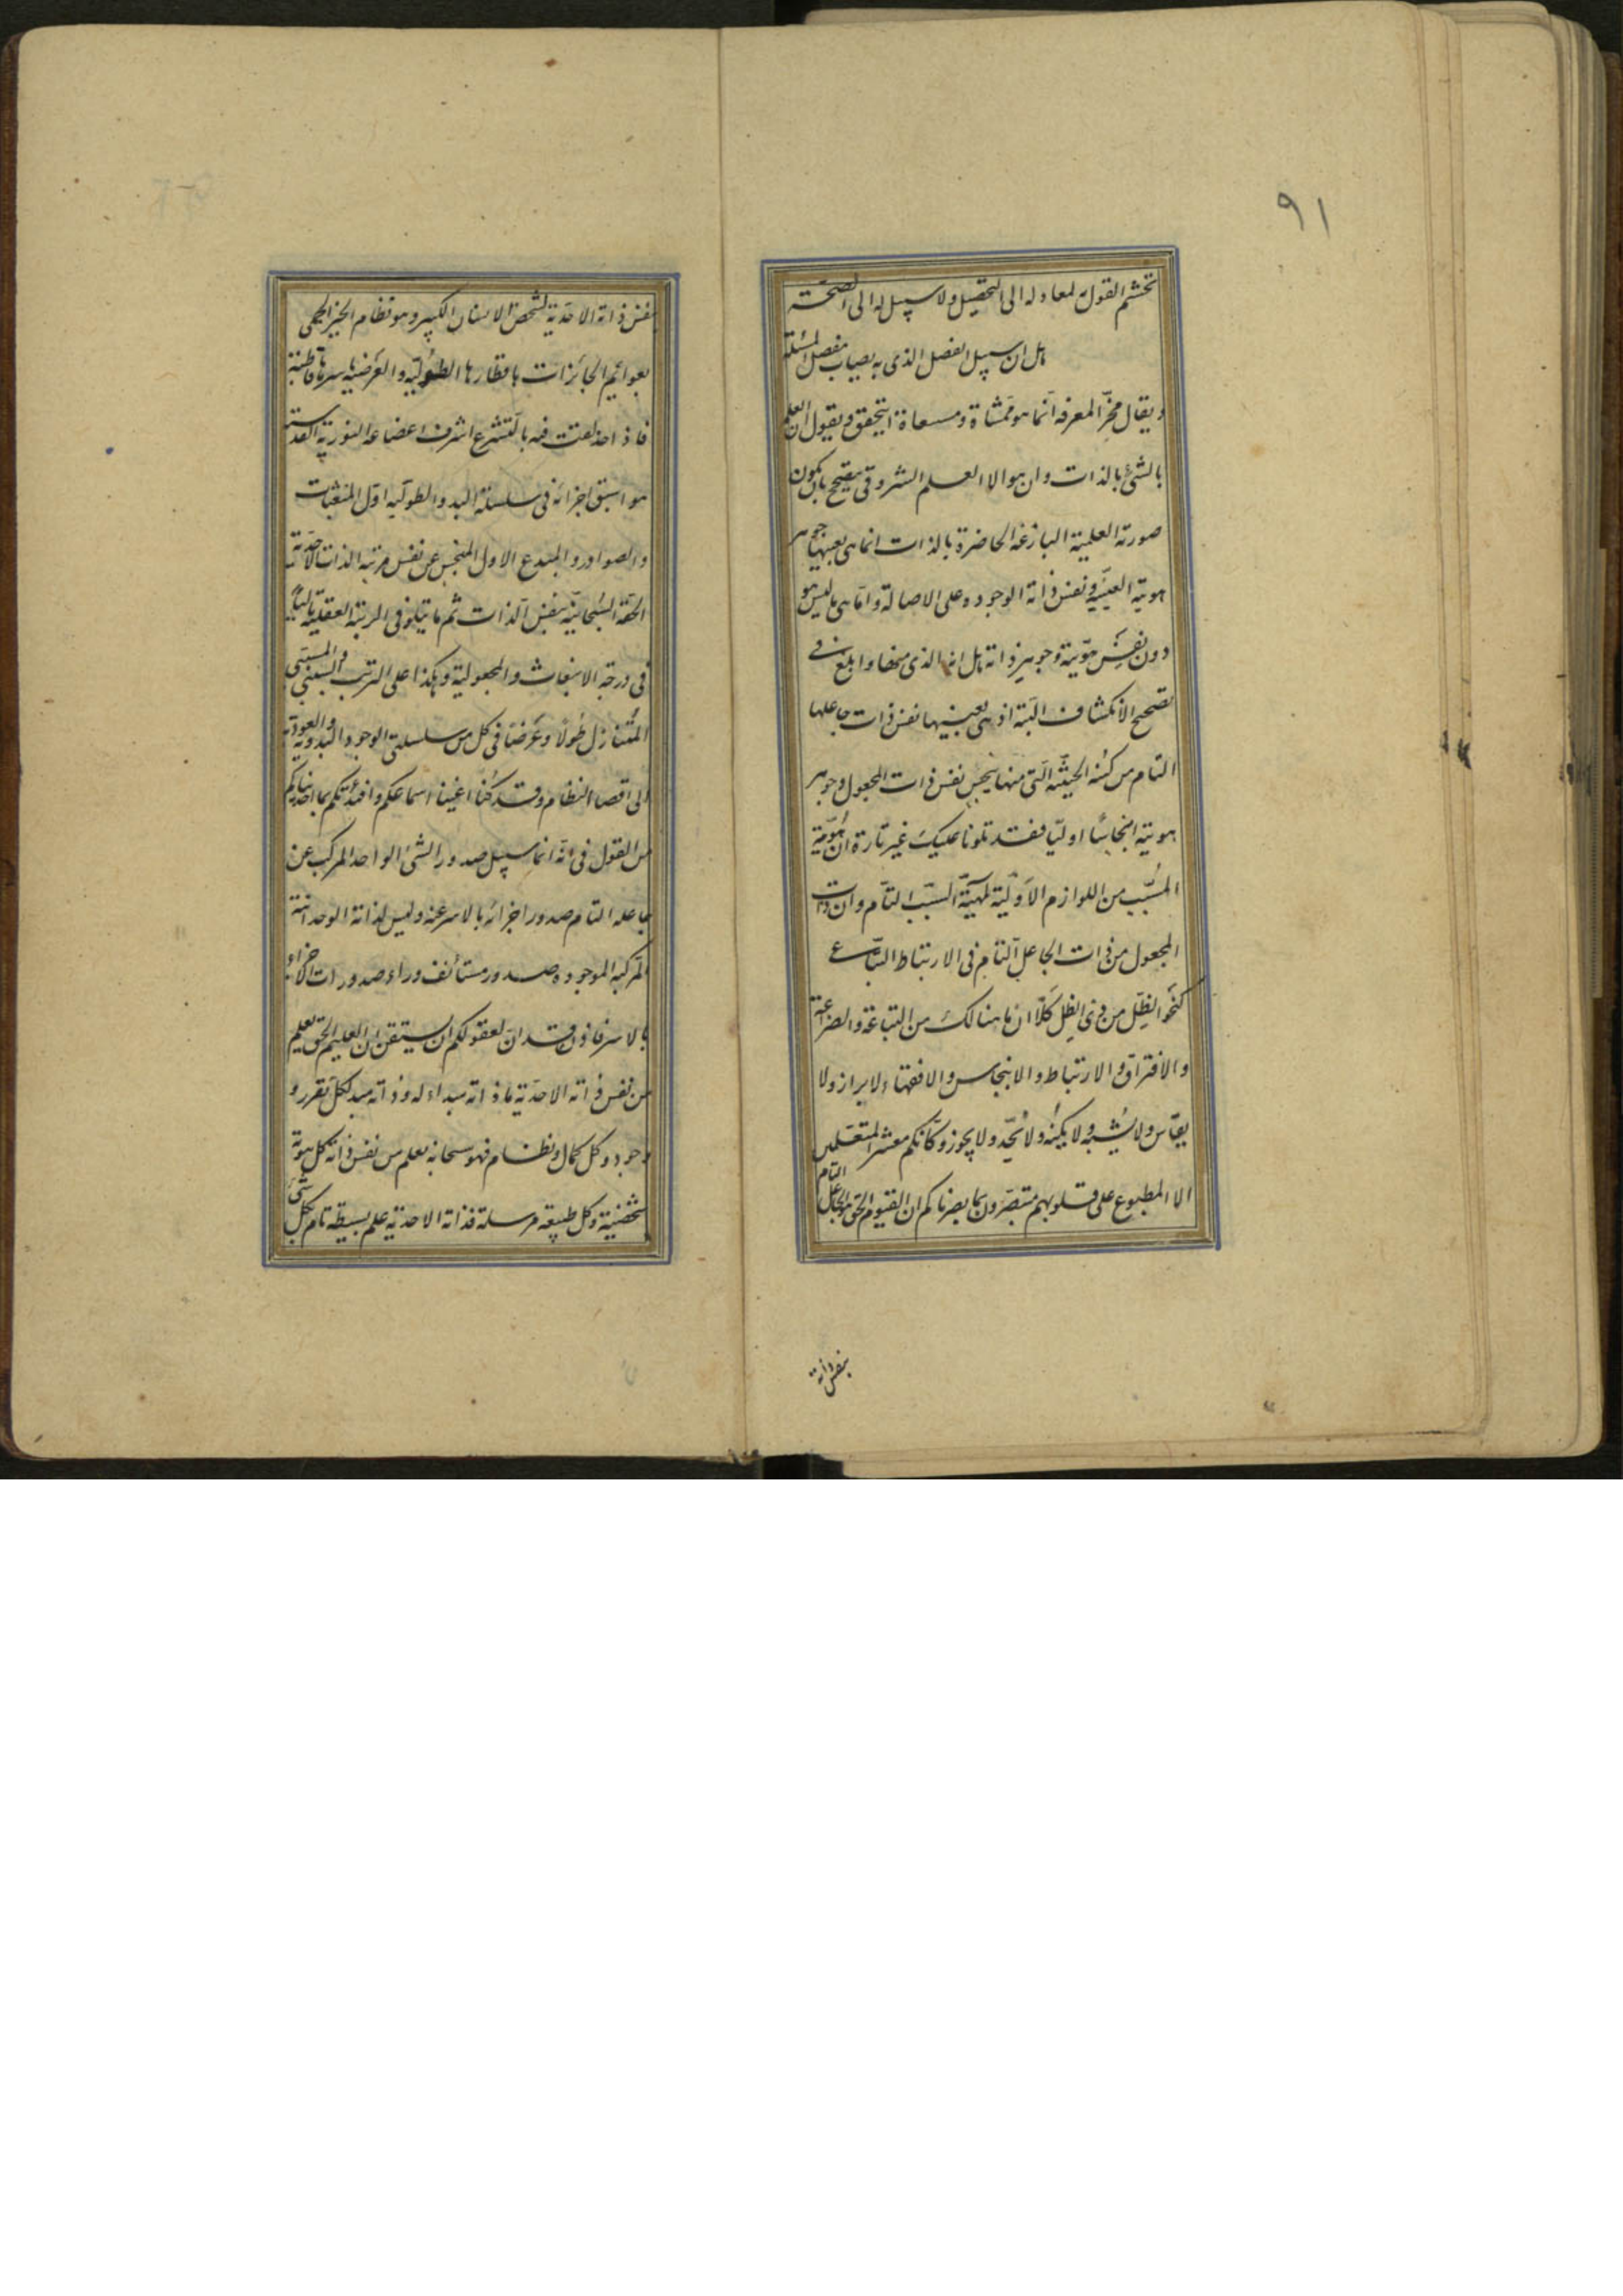 ٩١
تجشم القول به لمعاد له الى التحصيل ولا سبيل له الى الصحة
بل ان سبيل الفصل الذى به يصاب مفصل المسئلة
ويقال مخّ المعرفه انما هو ممشاة ومسعاة ان يتحقق ويقول ان العلم
بالشئ بالذات وان هو الا العلم الشروقى يتصحح بان يكون
صورته العلمية البازغه الحاضرة بالذات انما هى بعينها جوهر
هويته العينيه ونفس ذاته الموجوده على الاصالة واما هى ما ليس هو
دون نفس هويته وجوهر ذاته بل انه الذى منها وابلغ فى
تصحيح الانكشاف البتة اذ هى بعينيها نفس ذات جاعلها
التام من كنه الحيثيه التى منها ينبجس نفس ذات المجعول وجوهر
هويته انبجاسًا اوليّا فقد تلونا عليك غير تارة ان هُويّة
المُسبَّب من اللوازم الاَوّليّة لمهيّة السبَب التام وان ذات
المجعول من ذات الجاعل التام فى الارتباط التبّاع
كنحو الظِل من ذى الظِل كلّا ان ما هنالك من التباعة والضراعة
والافتراق والارتباط والانبجاس والافتهاء لا يراز ولا
يقاس ولا يُشبه ولا يكنه ولا يُحَد ولا يحوز وكانكم معشر المتعقلين
الا المطبوع على قلوبهم متبصّرون بما بصرناكم ان القيوم الحق هو الجاعل التام
بنفس ذاته
بنفس ذاته الاحدية لشخص الانسان الكبير وهو نظام الخير الجملى
بعوالم الجائزات باقطارها الطُوليه والعَرضيه باسرها قاطبة
فاذا اخذلعتت فيه بالتشرع اشرف اعضاءه النورية القدسية
هو اسبق اجزائه فى سلسلة البدو الطولّيه اول المنبعثات
والصوادر والمبتدع الاول المنبجس عن نفس مرتبة الذات الاحدية
الحقّة السُبحانيّة بنفس الذات ثم ما يتلوه فى المرتبة العقلية بالتباع
فى درجة الانبعاث والمجعولية وهكذا على الترتيب السببى والمسببى
المُتنازل طُولاً وعَرضًا فى كل من سلسلتى الوجود البدوية والعودية
الى اقصا النظام وقد كُنّا اغنينا اسماعكم وافئدتكم بما احدثناكم
من القول فى انّه انما سبيل صدور الشئ الواحد المركب عن
جاعله التام صدور اجزائه بالاسر عنه وليس لذاته الوحدانية
المركبه الموجوده صدور مستأنف وراء صدورات الاجزاء
بالاسر فاذن قد انَ لعقولكم ان يستيقن ان العليم الحق يعلم
من نفس ذاته الاحَدية ما ذاته مبداء له وذاته مبدأ لكل تقرر و
وجود وكل كمال ونظام فهو سبحانه يعلم من نفس ذاته كل هوية
شخصية وكل طبيعة مرسلة فذاته الاحدية علم بسيط تام بكل شئ